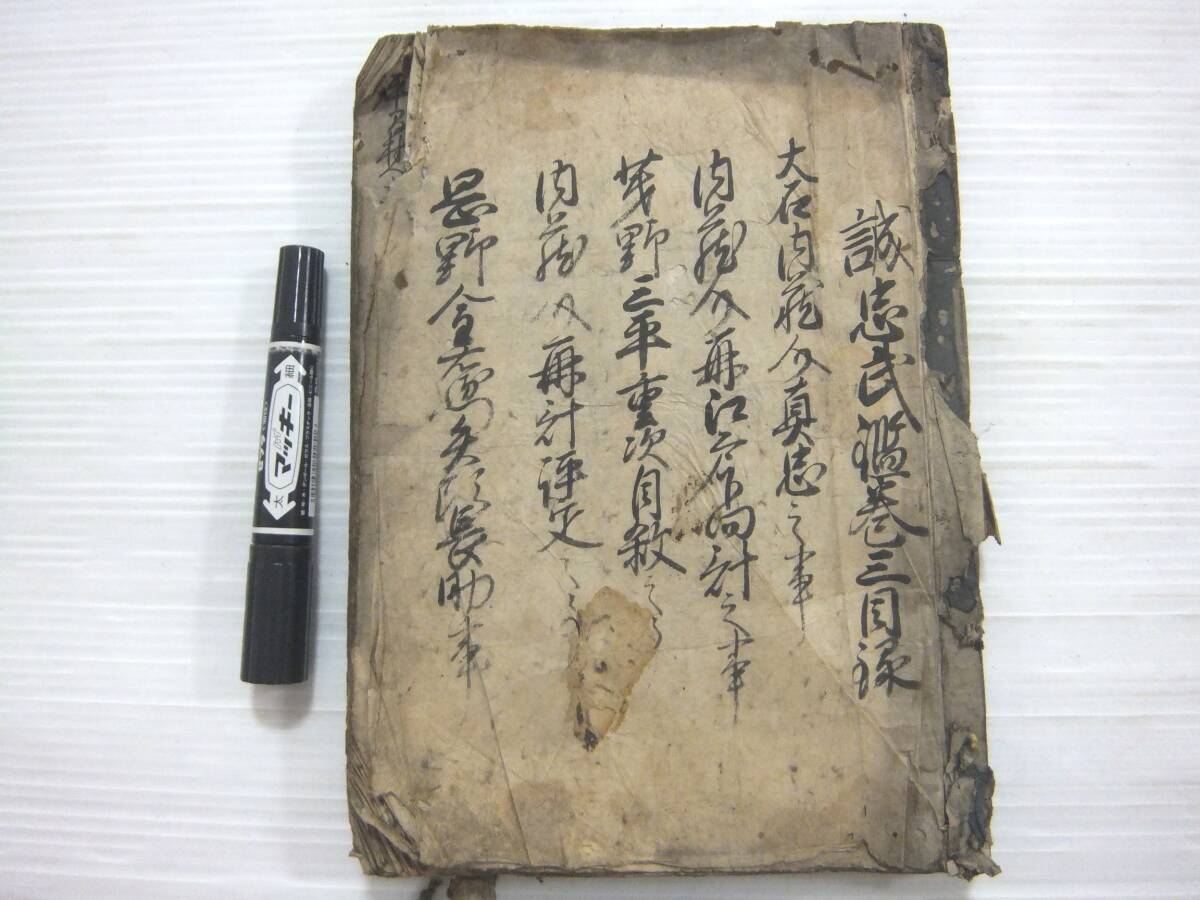 誠忠武鑑巻三目録
大石内蔵介真忠之事
内蔵介再江戸向計之事
萱野三平重次自殺之事
内蔵介再計評定之事
野金右衛門矢頭長助事
マッキー
太
細